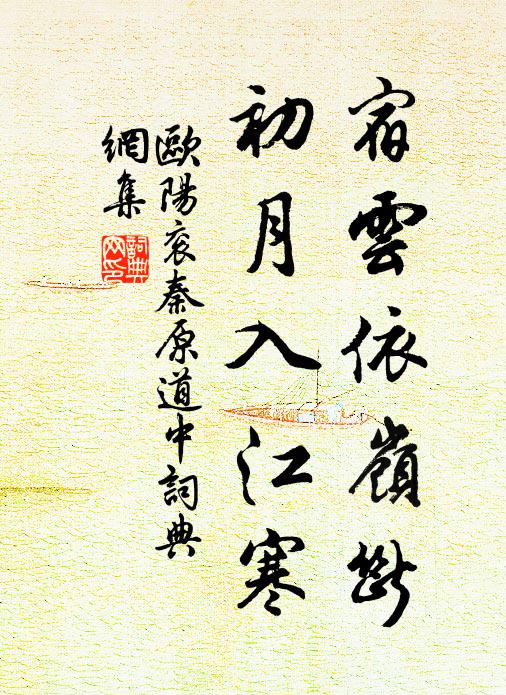 宿雲依嶺斷
初月入江寒
歐陽袞秦原道中詞典
網集
詞典
网印